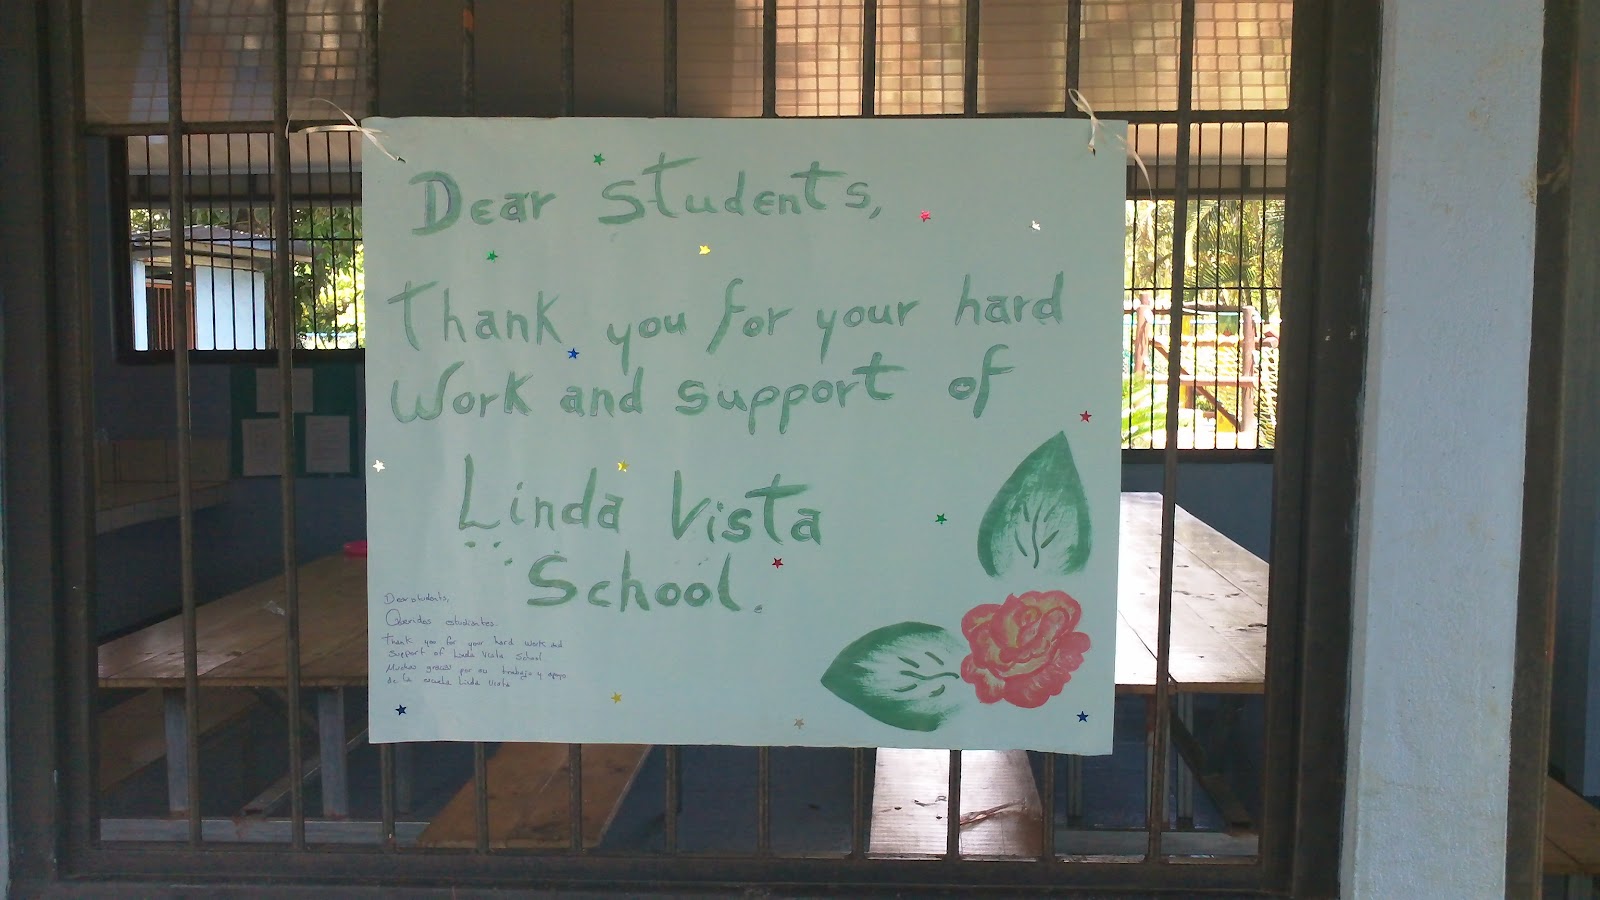 Dear Students,
Thank you for your hard
Work and support of
Linda Vista
School.
Dear students,
Queridos estudiantes.
Thank you for your hard work and
support of Linda Vista School
Muchas gracias por su trabajo y apoyo
de la escuela Linda Vista